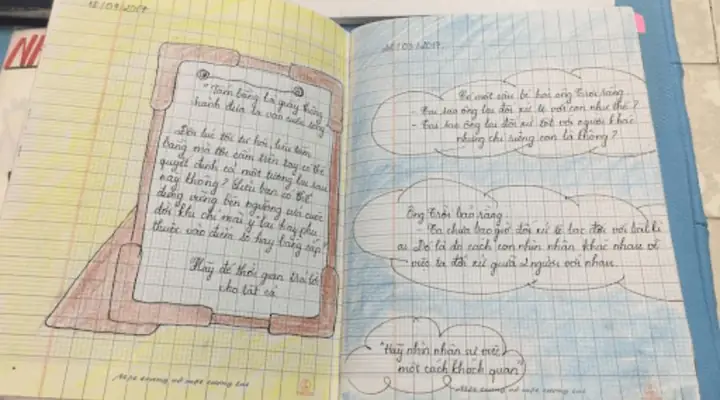 12/03/2017
"Tấm bằng là giấy thông
hành đưa ta vào cuộc sống
Đôi lúc tôi tự hỏi, liệu tấm
bằng mà tôi cầm trên tay có thể
quyết định cả một tương lai sau
này không? Liệu bạn có thể
đứng vững bên ngưỡng cửa cuộc
đời khi chỉ mãi ỷ lại hay phụ
thuộc vào điểm số hay bằng cấp?
Hãy để thời gian trả lời
cho tất cả
Một tương về một tương lai
/03/2017
Có một cậu bé hỏi ông Trời rằng
- Tại sao ông lại đối xử tệ với con như thế?
- Tại sao ông lại đối xử tốt với người khác
nhưng chỉ riêng con là không?
Ông Trời bảo rằng
- Ta chưa bao giờ đối xử tệ bạc đối với bất kì
ai. Đó là do cách con nhìn nhận khác nhau về
việc ta đối xử giữa 2 người với nhau
"Hãy nhìn nhận sự việc
một cách khách quan"
Một tương về một tương lai